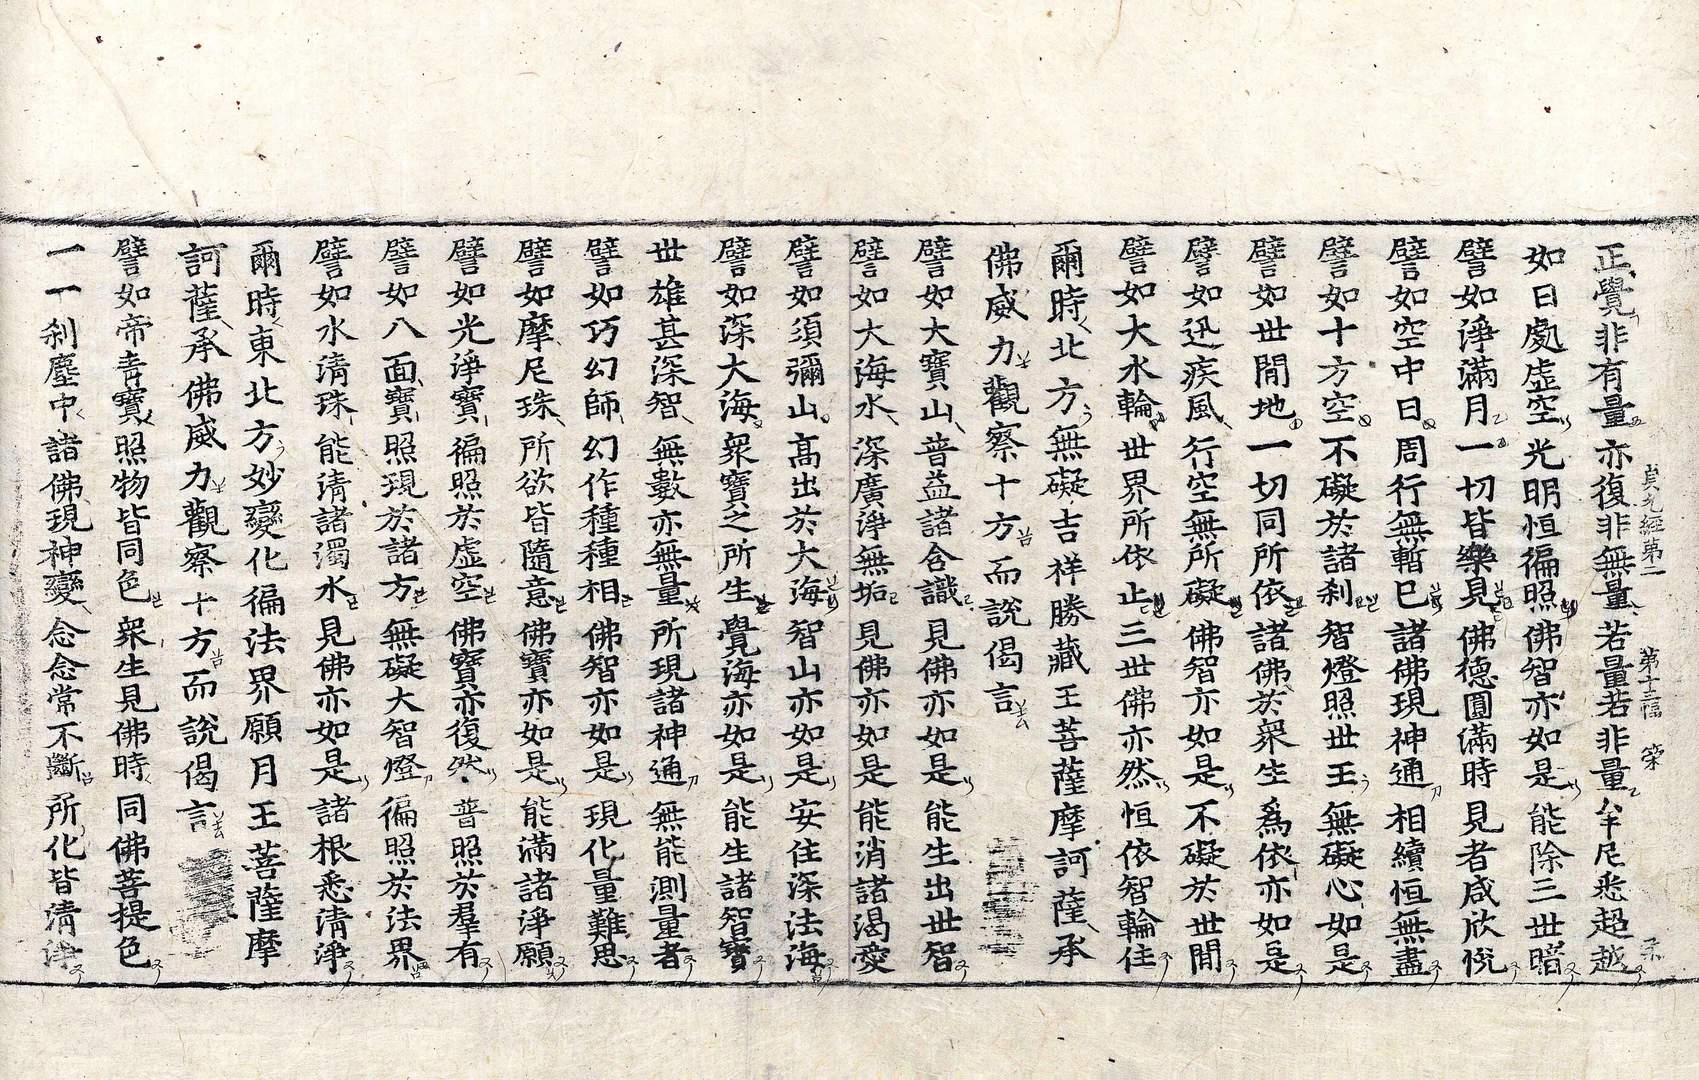 正覺非有量亦復非無量若量若非量牟尼悉超越
如日處虛空光明恒徧照佛智亦如是能除三世暗
譬如淨滿月一切皆樂見佛德圓滿時見者咸欣悅
譬如空中日周行無暫已諸佛現神通相續恒無盡
譬如十方空不礙於諸刹智燈照世王無礙心如是
譬如世間地一切同所依諸佛於衆生爲依亦如是
譬如迅疾風行空無所礙佛智亦如是不礙於世間
譬如大水輪世界所依止三世佛亦然恒依智輪住
爾時北方無礙吉祥勝藏王菩薩摩訶薩承
佛威力觀察十方而說偈言
譬如大寶山普益諸含識見佛亦如是能生出世智
譬如大海水深廣淨無垢見佛亦如是能消諸渴愛
譬如須彌山高出於大海智山亦如是安住深法海
譬如深大海衆寶之所生覺海亦如是能生諸智寶
世雄甚深智無數亦無量所現諸神通無能測量者
譬如巧幻師幻作種種相佛智亦如是現化量難思
譬如摩尼珠所欲皆隨意佛寶亦如是能滿諸淨願
譬如光淨寶徧照於虛空佛寶亦復然普照於羣有
譬如八面寶照現於諸方無礙大智燈徧照於法界
譬如水淸珠能淸諸濁水見佛亦如是諸根悉淸淨
爾時東北方妙變化徧法界願月王菩薩摩
訶薩承佛威力觀察十方而說偈言
譬如帝靑寶照物皆同色衆生見佛時同佛菩提色
一一刹塵中諸佛現神變念念常不斷所化皆淸淨